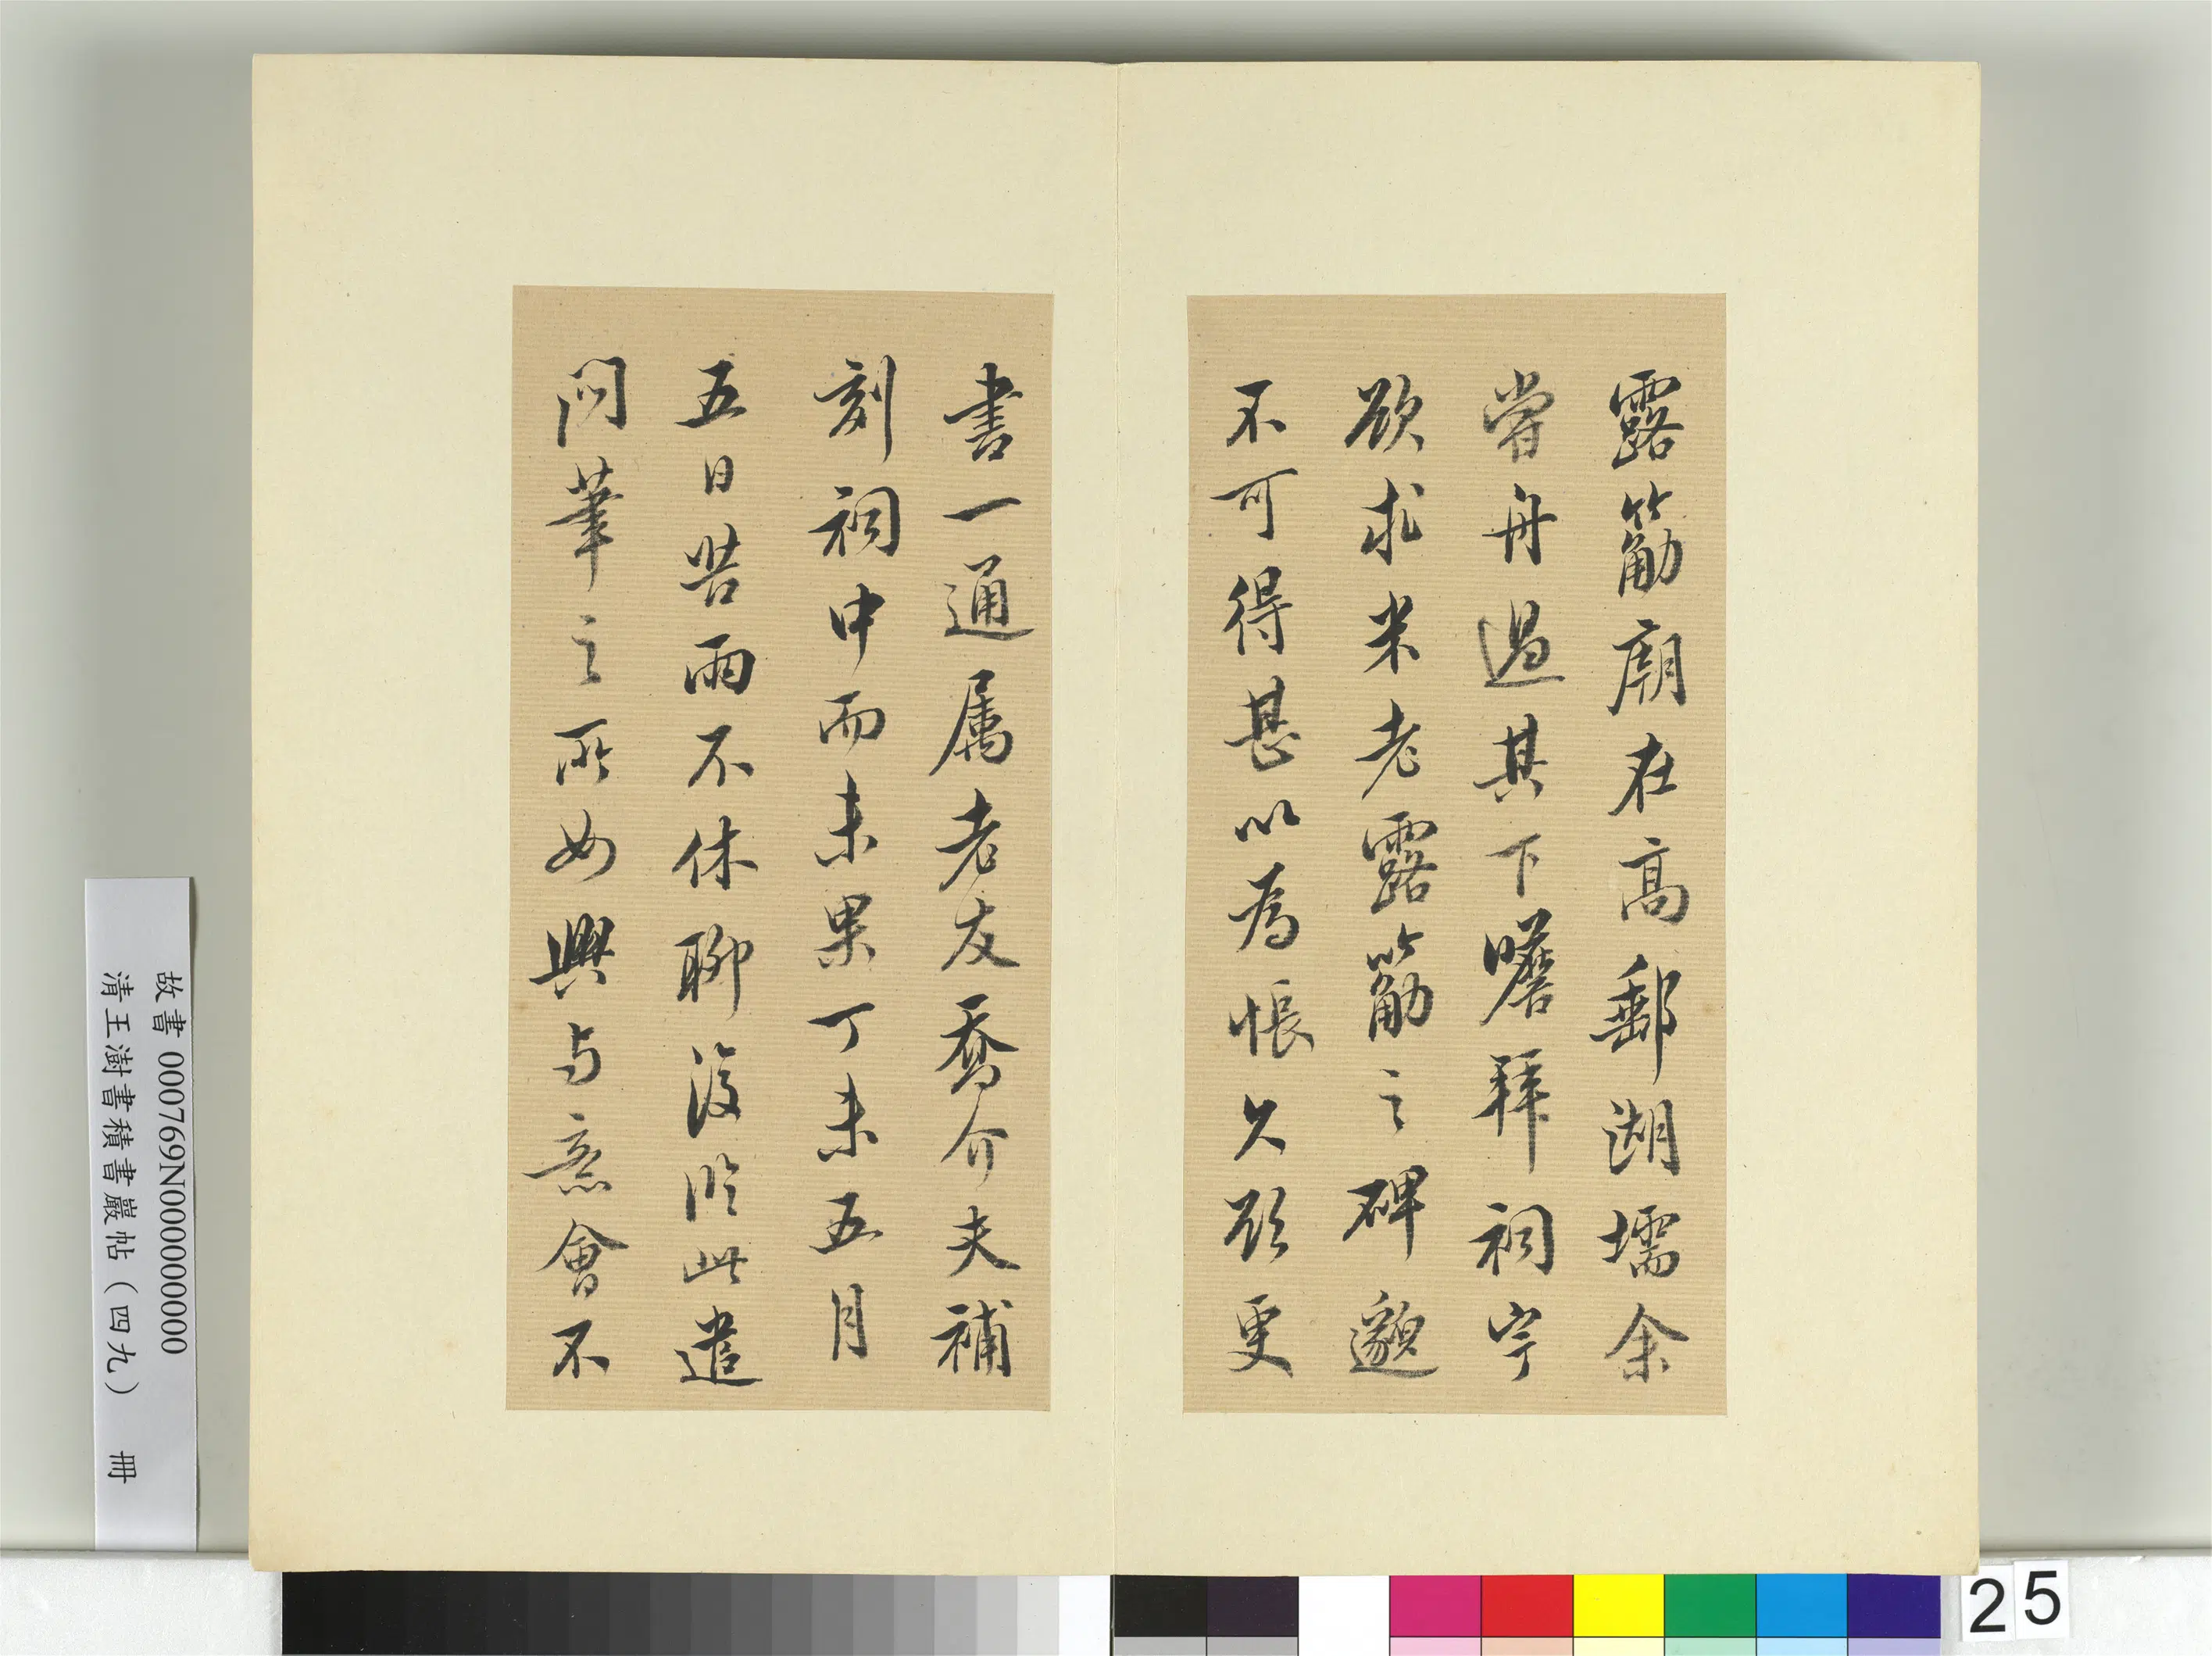 露筋廟在高郵湖壖余
嘗舟過其下瞻拜祠宇
欲求米老露筋之碑邈
不可得甚以為悵久欲更
書一通属老友喬介夫補
刻祠中而未果丁未五月
五日苦雨不休聊復臨此遣
悶筆之所如興与意會不
故書 000769N000000000
清王澍書積書巖帖(四九) 冊
25